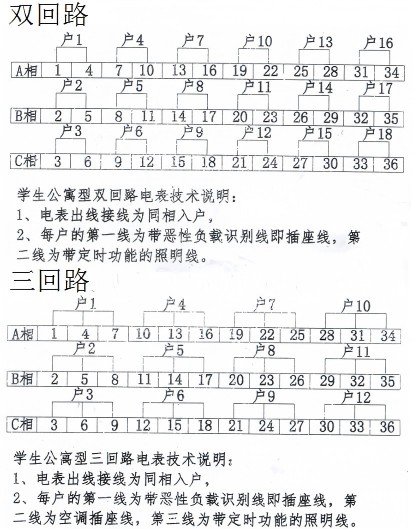 双回路
户1 户4 户7 户10 户13 户16
A相 1 4 7 10 13 16 19 22 25 28 31 34
户2 户5 户8 户11 户14 户17
B相 2 5 8 11 14 17 20 23 26 29 32 35
户3 户6 户9 户12 户15 户18
C相 3 6 9 12 15 18 21 24 27 30 33 36
学生公寓型双回路电表技术说明：
1、电表出线接线为同相入户，
2、每户的第一线为带恶性负载识别线即插座线，第
二线为带定时功能的照明线。
三回路
户1 户4 户7 户10
A相 1 4 7 10 13 16 19 22 25 28 31 34
户2 户5 户8 户11
B相 2 5 8 11 14 17 20 23 26 29 32 35
户3 户6 户9 户12
C相 3 6 9 12 15 18 21 24 27 30 33 36
学生公寓型三回路电表技术说明：
1、电表出线接线为同相入户，
2、每户的第一线为带恶性负载识别线即插座线，第
二线为空调插座线，第三线为带定时功能的照明线。